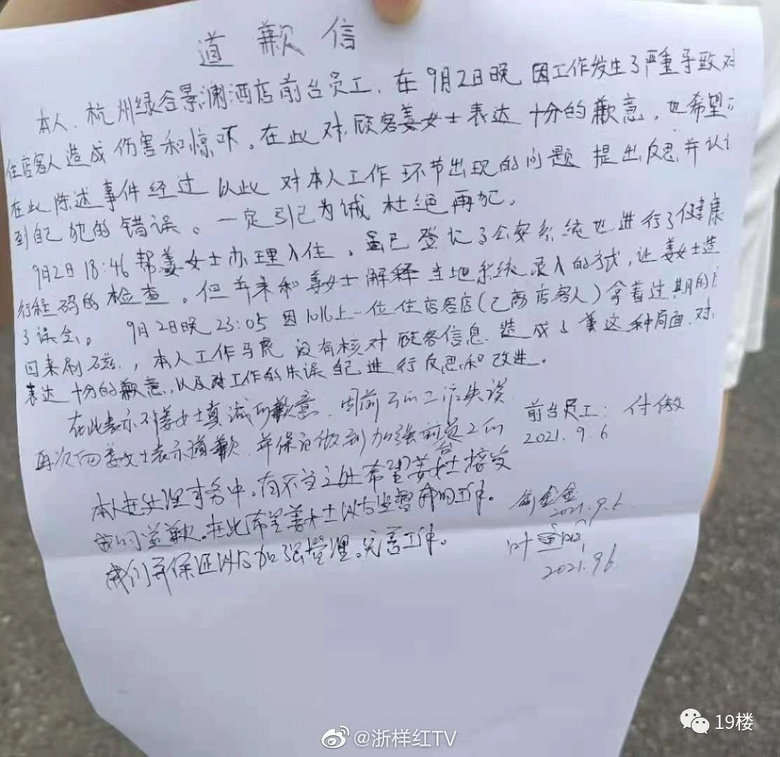 道歉信
本人、杭州绿谷景澜酒店前台员工,在9月2日晚因工作发生了严重导致对
住店客人造成伤害和惊吓。在此对顾客姜女士表达十分的歉意。也希望
在此陈述事件经过以此对本人工作环节出现的问题提出反思并认识
到自己犯的错误。一定引已为诫杜绝再犯。
9月2日18:46帮姜女士办理入住,虽已登记了公安系统也进行了健康
行程码的检查。但并未和姜女士解释当地系统录入的方式,让姜女士造
了误会。 9月2日晚23:05因1016上一位住店客店(已离店客人)拿着过期的
回来刷磁,本人工作马虎没有核对顾客信息.造成了这种局面.对
表达十分的歉意,以及对工作的失误自己进行反思和改进。
在此表示对姜女士真诚的歉意 工作失误
前台员工:付傲
再次向姜女士表示道歉.并保证做到加强
2021.9.6
本人在处理事务中,有不主之处希望姜女士接受
我们道歉.在此希望姜女士以后监督我们工作。
金金
2021.9.6
我们并保证以后加强管理.完善工作。
叶
2021.9.6
浙样红TV
19楼